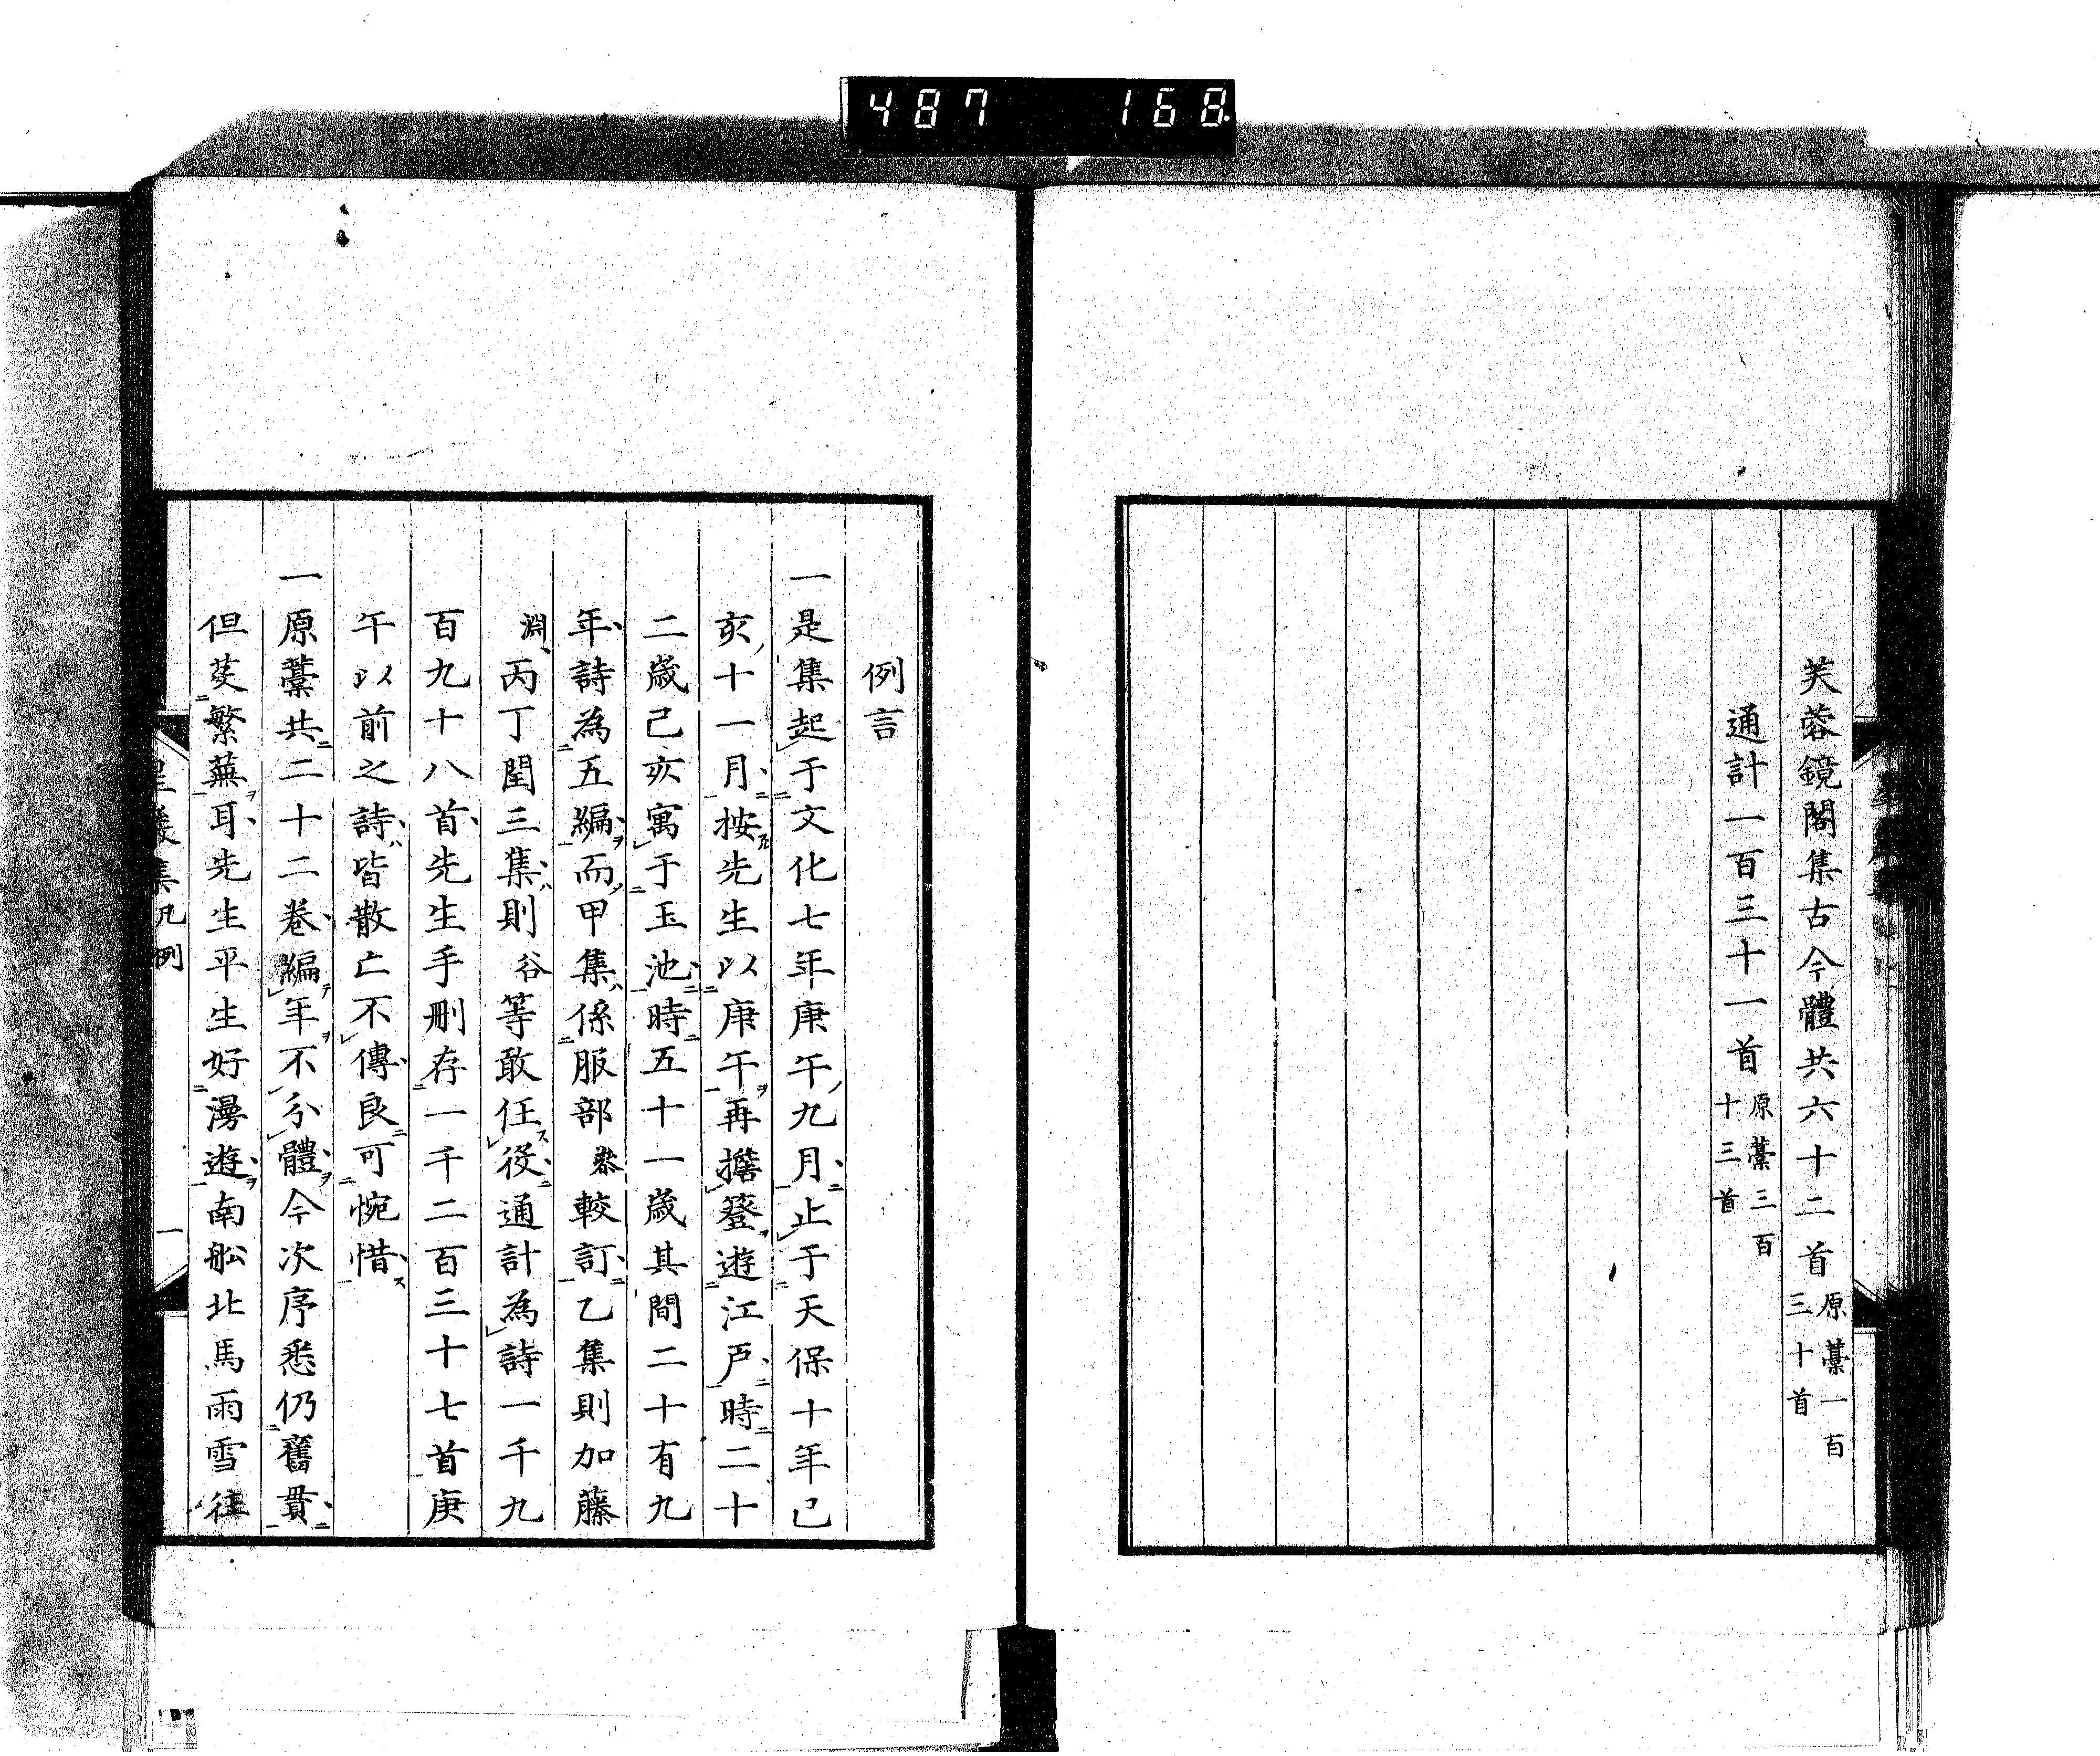 487 168
芙蓉鏡閣集古今體共六十二首原藁一百三十首
通計一百三十一首原藁三百十三首
例言
一是集起于文化七年庚午九月止于天保十年己
亥十一月按先生以庚午再擔簦遊江戸時二十
二歳己亥寓于玉池時五十一歳其間二十有九
年詩為五編而甲集係服部 較訂乙集則加藤
淵丙丁閏三集則谷等敢任役通計為詩一千九
百九十八首先生手刪存一千二百三十七首庚
午以前之詩皆散亡不傳良可惋惜
一原藁共二十二卷編年不分體今次序悉仍舊貫
但芟繁蕪耳先生平生好漫遊南舩北馬雨雪往
集凡例
一